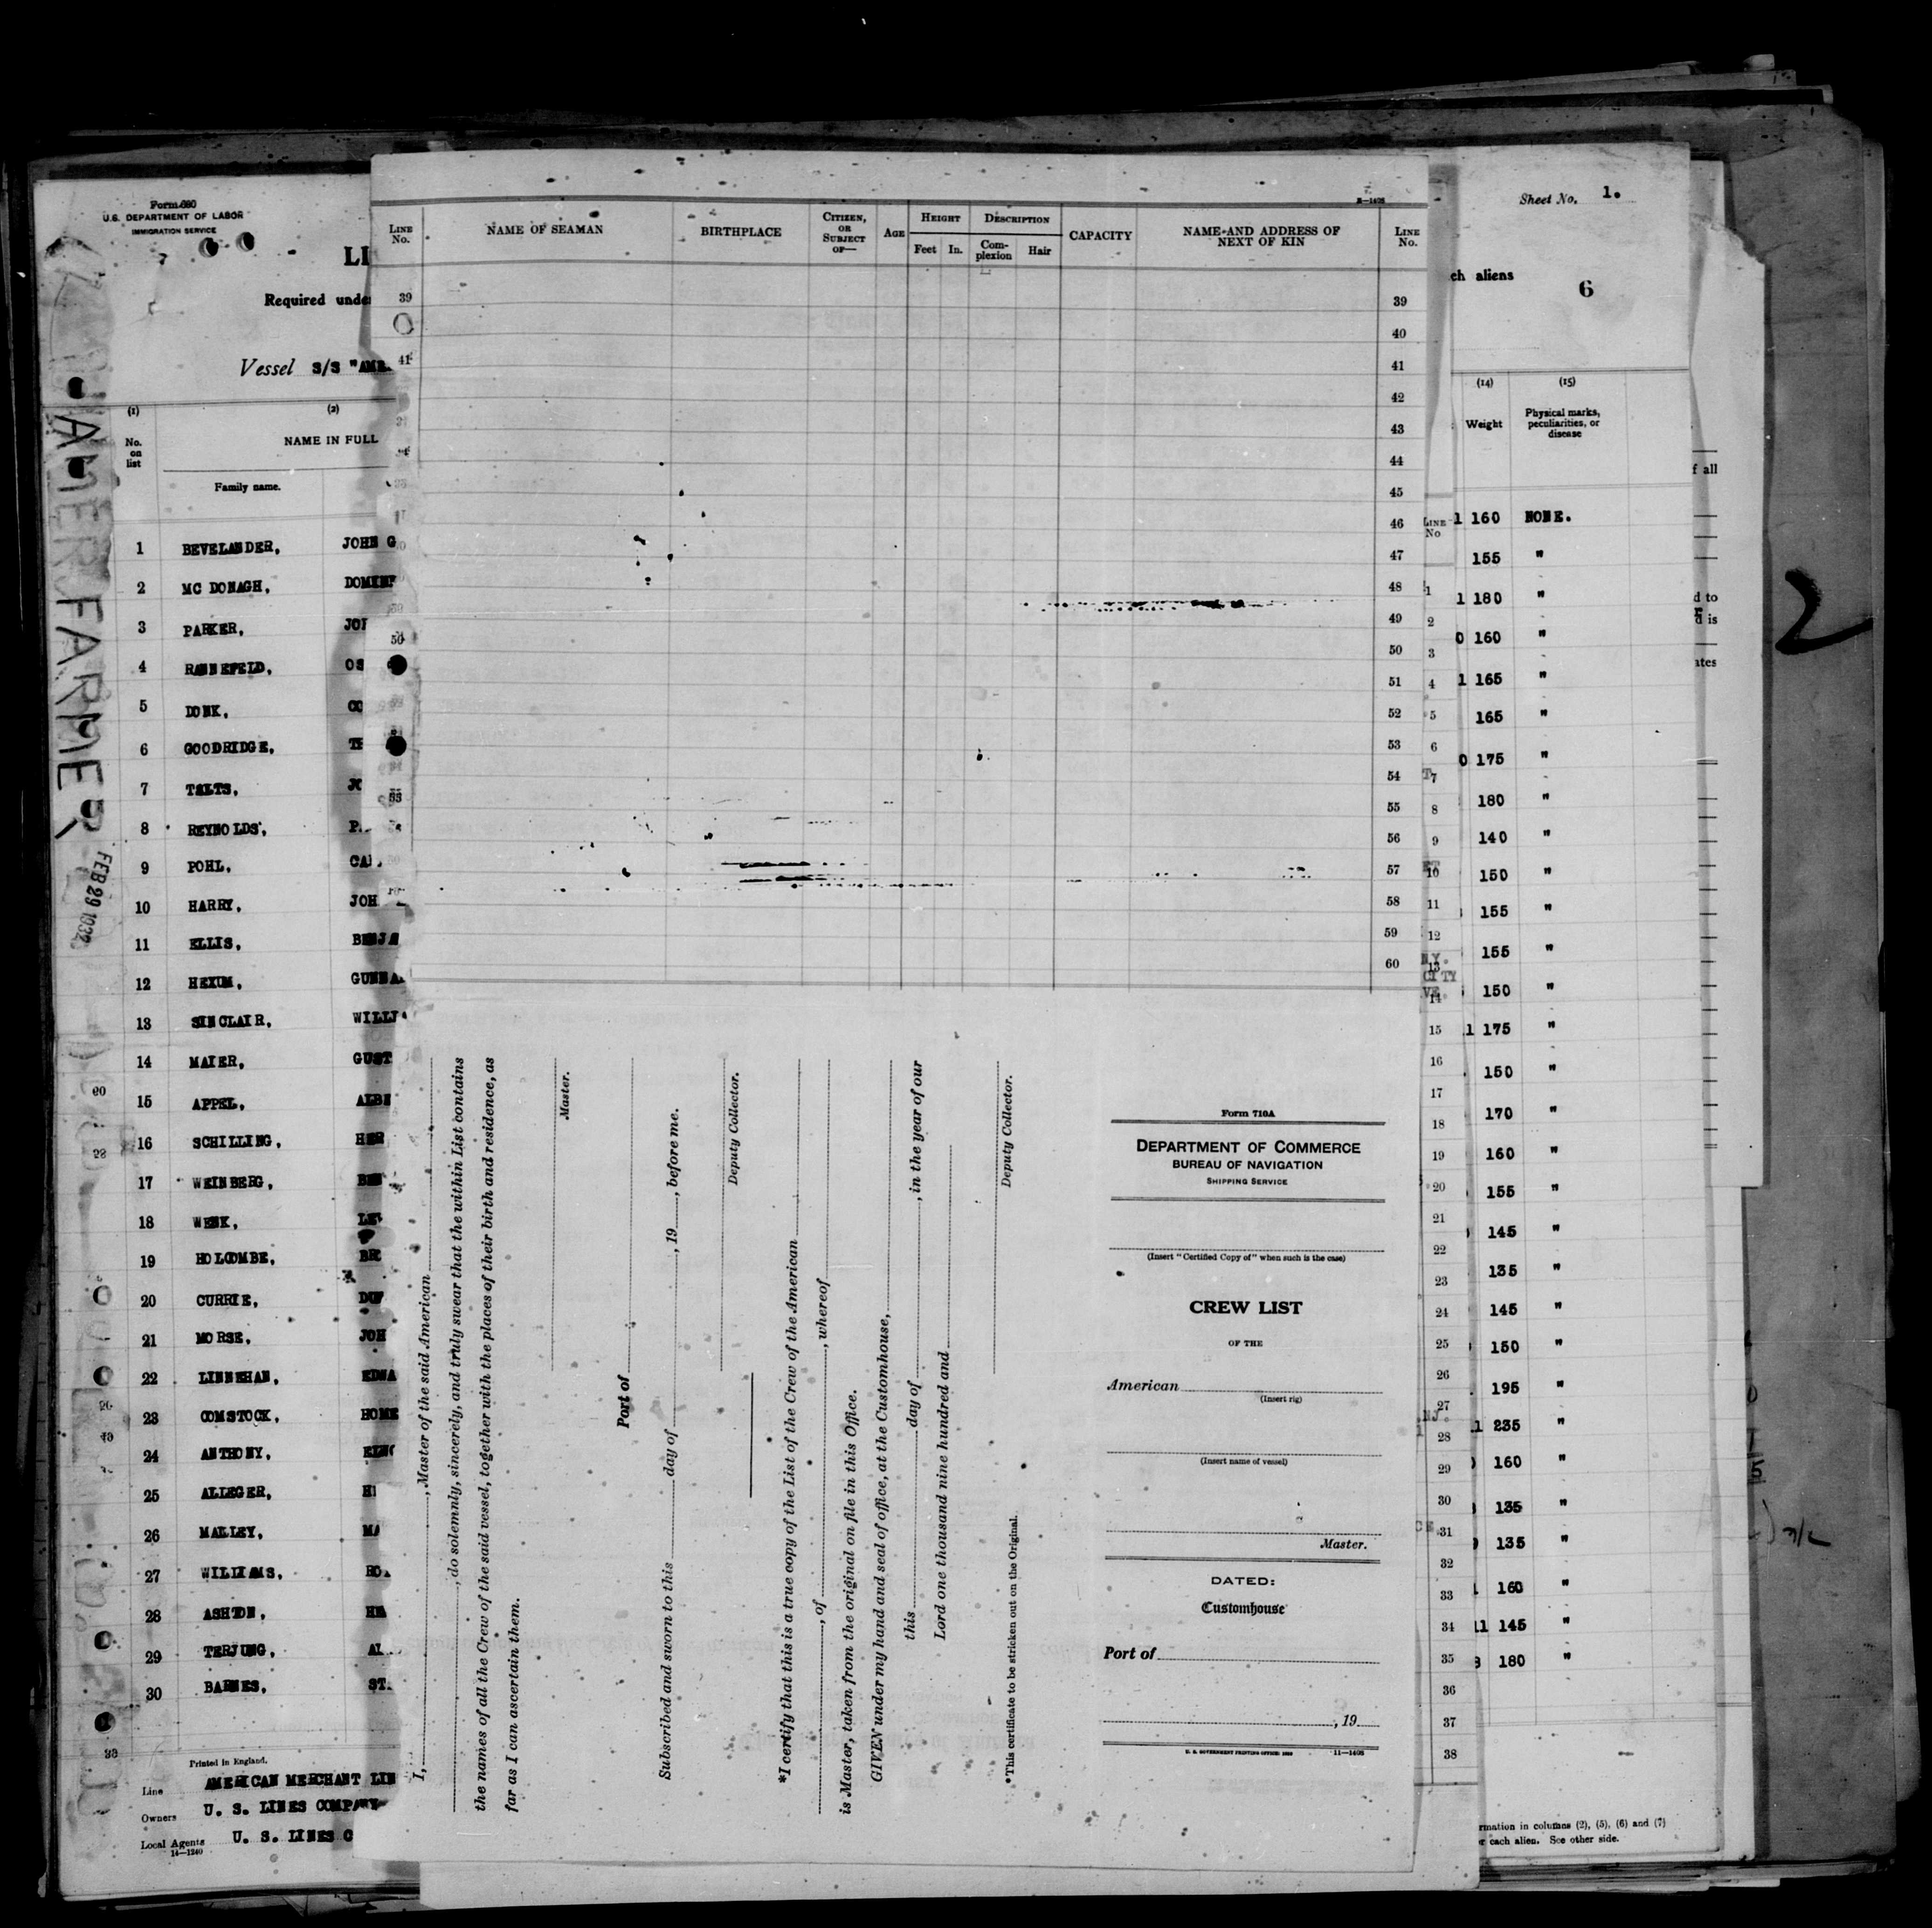 Form 680
U.S. DEPARTMENT OF LABOR
IMMIGRATION SERVICE
LI
Required unde
Vessel S/S "AME
(1) (2)
No. on list
NAME IN FULL
Family name.
1 BEVELANDER, JOHN G
2 MC DONAGH,
3 PARKER,
4 RANNEFELD, OS
5 DONK, CO
6 GOODRIDGE,
7 TALTS, JO
8 REYNOLDS,
9 POHL,
10 HARRY, JOH
11 ELLIS, BENJA
12 HEXUM, GUNNA
13 SINCLAIR, WILLI
14 MAIER, GUST
15 APPEL, ALBE
16 SCHILLING, HER
17 WEINBERG, BEN
18 WENK,
19 HOLCOMBE,
20 CURRIE,
21 MORSE, JOH
22 LINNEHAN, EDWA
23 COMSTOCK, HOME
24 ANTHONY,
25 ALLEGER,
26 MALLEY, MA
27 WILLIAMS,
28 ASHTON,
29 TERJUNG,
30 BARNES, ST
Printed in England.
Line AMERICAN MERCHANT LIN
Owners U. S. LINES COMPANY
Local Agents U. S. LINES C
14—1240
AMER. FARMER
FEB 29 1932
LINE No.
NAME OF SEAMAN
BIRTHPLACE
CITIZEN, OR SUBJECT OF—
AGE
HEIGHT
Feet In.
DESCRIPTION
Complexion Hair
CAPACITY
NAME AND ADDRESS OF NEXT OF KIN
LINE No.
39 39
40
41 41
42
43
44
45
46
47
48
49
50 50
51
52
53
54
55
56
57
58
59
60
I, , Master of the said American
, do solemnly, sincerely, and truly swear that the within List contains
the names of all the Crew of the said vessel, together with the places of their birth and residence, as
far as I can ascertain them.
Master.
Port of
Subscribed and sworn to this day of , 19 , before me.
Deputy Collector.
*I certify that this is a true copy of the List of the Crew of the American
, of , whereof
is Master, taken from the original on file in this Office.
GIVEN under my hand and seal of office, at the Customhouse,
this day of , in the year of our
Lord one thousand nine hundred and
Deputy Collector.
*This certificate to be stricken out on the Original.
Form 710A
DEPARTMENT OF COMMERCE
BUREAU OF NAVIGATION
SHIPPING SERVICE
(Insert "Certified Copy of" when such is the case)
CREW LIST
OF THE
American
(Insert rig)
(Insert name of vessel)
Master.
DATED:
Customhouse
Port of
, 19
U. S. GOVERNMENT PRINTING OFFICE 11—1408
LINE No
1
2
3
4
5
6
7
8
9
10
11
12
13
14
15
16
17
18
19
20
21
22
23
24
25
26
27
28
29
30
31
32
33
34
35
36
37
38
N.Y.
CITY
Sheet No. 1.
ch aliens
6
(14) (15)
Weight
Physical marks, peculiarities, or disease
160 NONE.
155 "
180 "
160 "
165 "
165 "
175 "
180 "
140 "
150 "
155 "
155 "
150 "
175 "
150 "
170 "
160 "
155 "
145 "
135 "
145 "
150 "
195 "
235 "
160 "
135 "
135 "
160 "
145 "
180 "
rmation in columns (2), (5), (6) and (7)
r each alien. See other side.
f all
d to
d is
ates
2